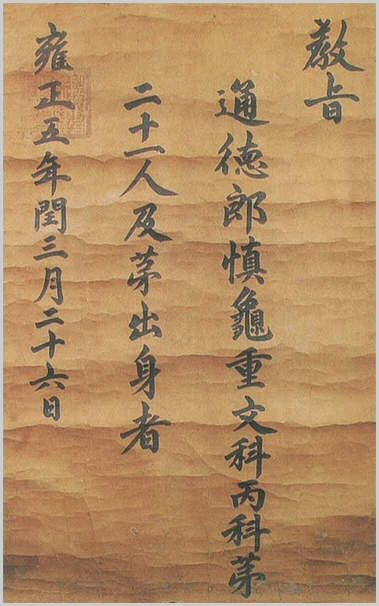 敎旨
通德郎愼龜重文科丙科第
二十一人及第出身者
雍正五年閏三月二十六日